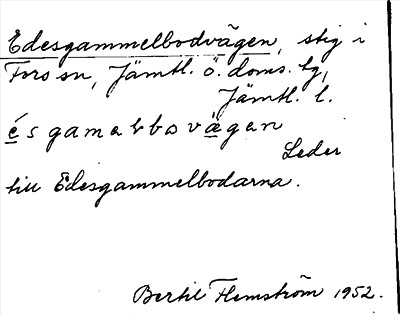 Edesgammelbodvägen, stig i
Fors sn, Jämtl. ö. doms. tg,
Jämtl. l.
é s g a m a l b o v ä g a n
Leder
till Edesgammelbodarna.
Bertil Flemström 1952.